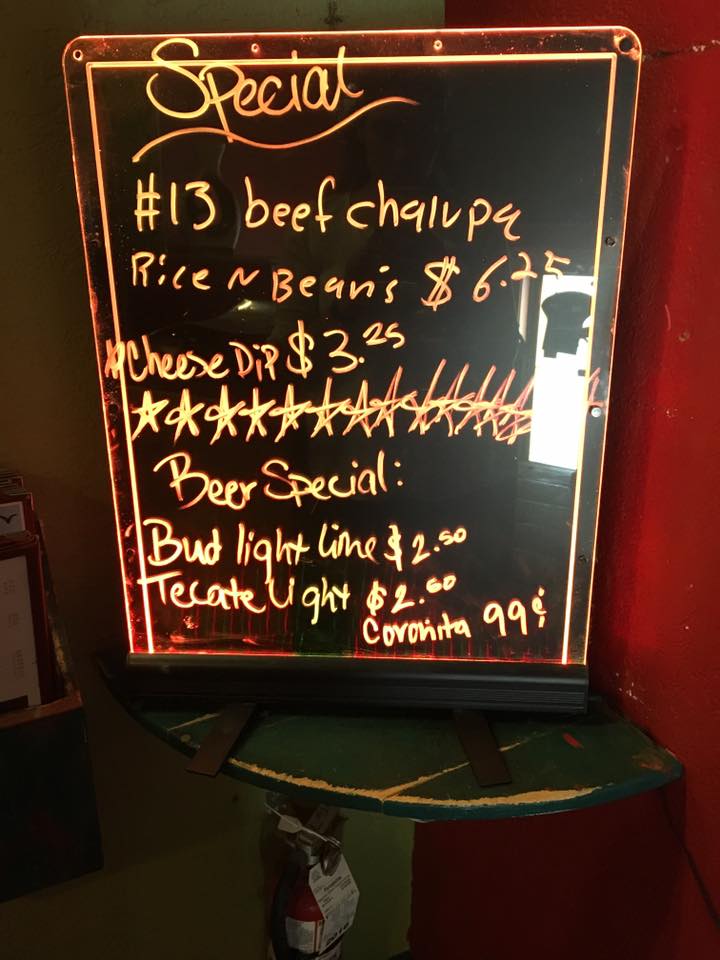 Special
#13 beef chalupa
Rice N Bean's $6.25
*Cheese Dip $3.25
Beer Special:
Bud light lime $2.50
Tecate Light $2.50
Coronita 99¢